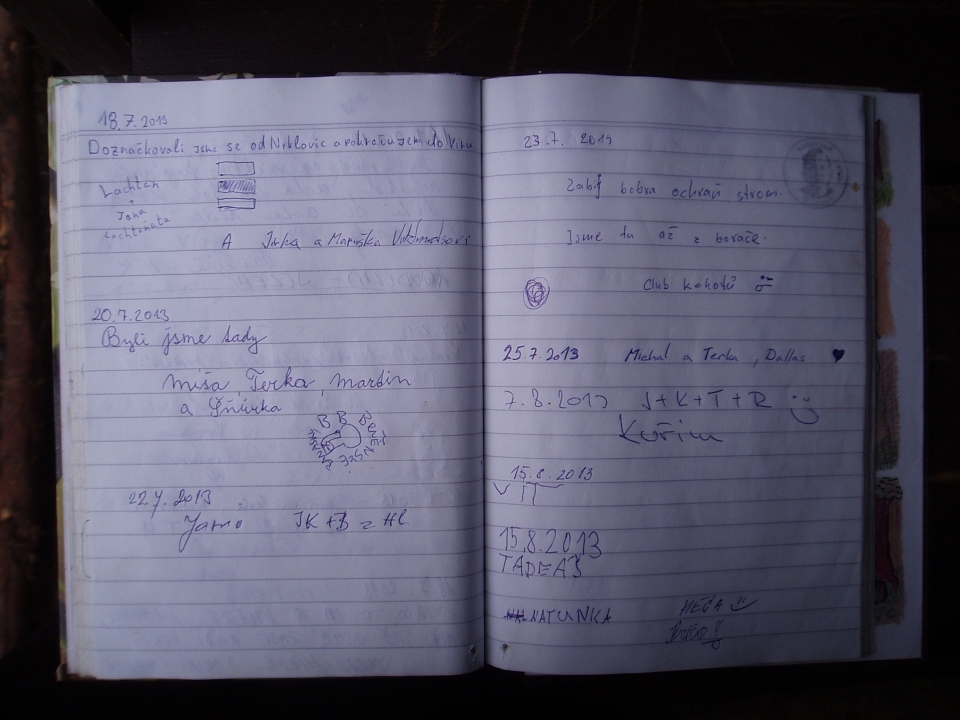 18.7.2013
Doznačkovali jsme se od Nehlovic a pokračujem do Víru
Lachtan
+
Jana
Lachtaňata
A Jirka a Maruška
20.7.2013
Byli jsme tady
Míša, Terka, Martin
a Šňůrka
22.7.2013
Jarno JK+B z Hl.
23.7.2013
Zabij bobra ochraň strom.
Jsme tu až z borače.
Club kohotů
25.7.2013 Michal a Terka, Dallas
7.8.2013 J+K+T+R
Kuřim
15.8.2013
VÍT
15.8.2013
TADEÁŠ
NATUNKA
HEČA